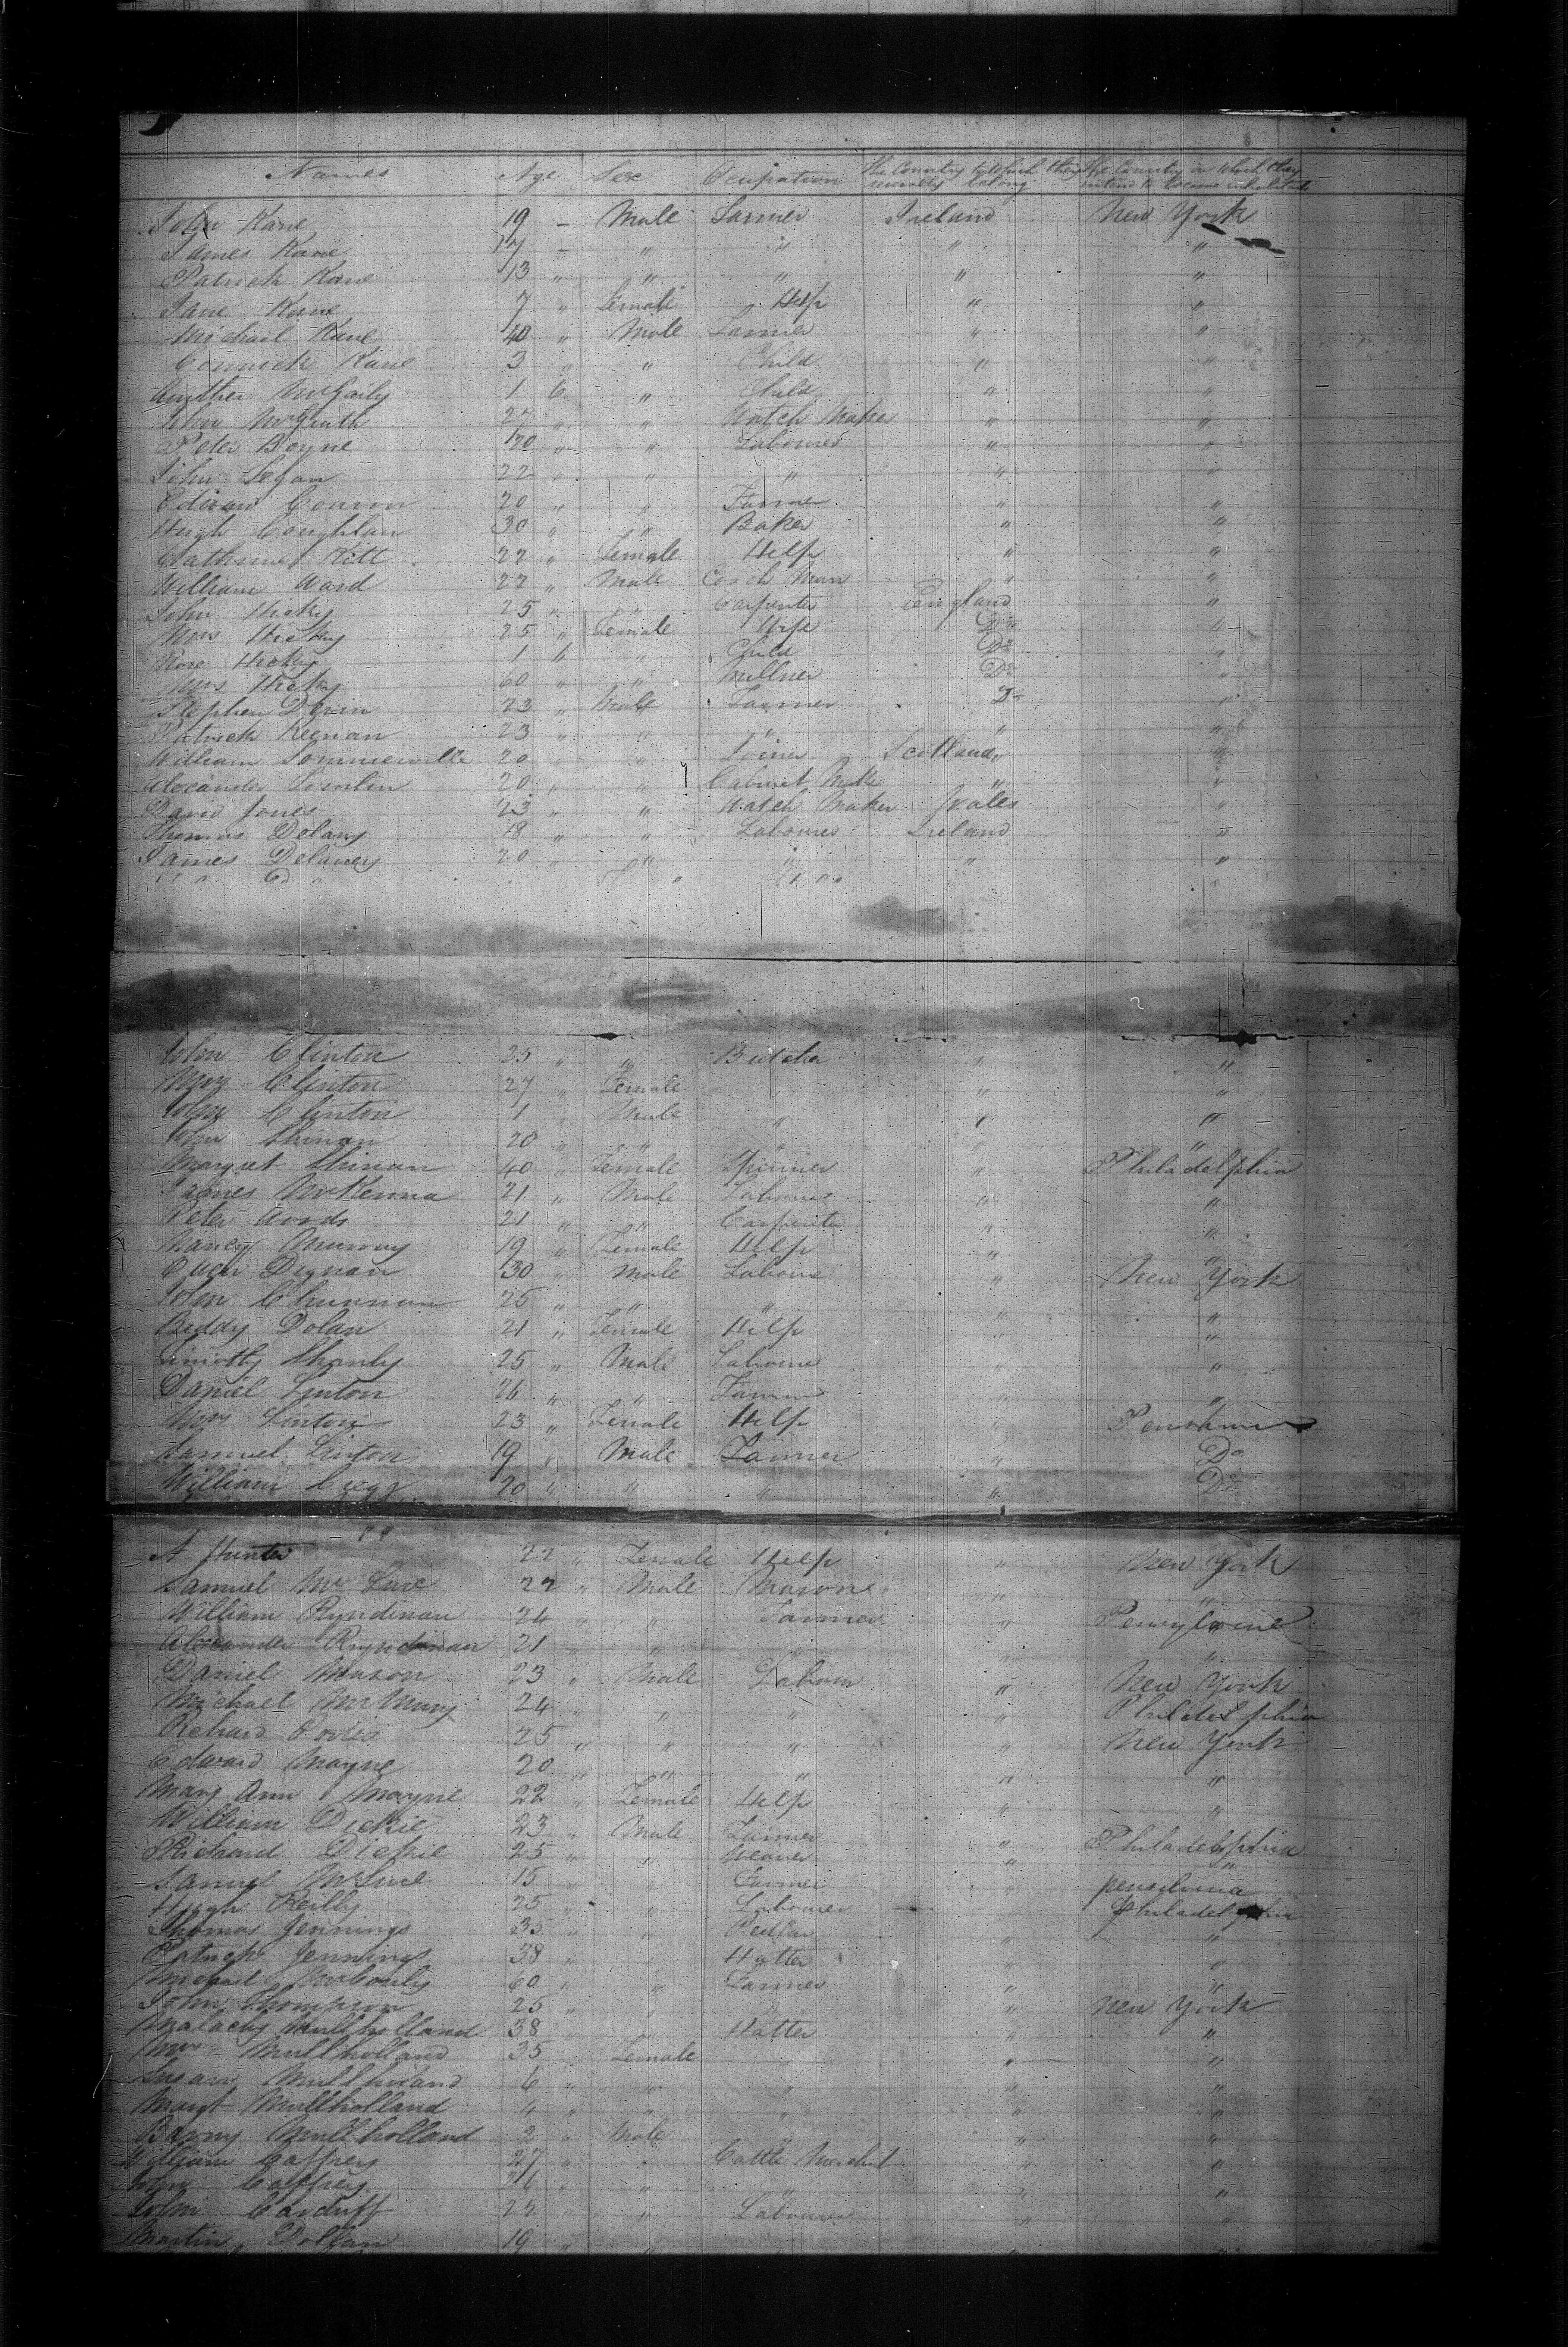 Names Age Sex Ocupation The Country to which they usually belong The Country in which they intend to become inhabitants
John Kane 19 - Male Farmer Ireland New York
James Kane 17 - " " " "
Patrick Kane 13 " " " " "
Jane Kane 7 " Female Help " "
Michael Kane 40 " Male Farmer " "
Cormick Kane 3 " " Child " "
McGaily 1 6 " Child " "
John McGrath 27 " " Watch Maker " "
Peter Boyne 20 " " Labourer " "
John Legan 22 " " " " "
Edward 20 " " Farmer " "
Hugh Coughlan 30 " " Baker " "
Catherine Kitt 22 " Female Help " "
William Ward 22 " Male Coach Man " "
John Hicky 25 " " Carpenter England "
Mrs Hicky 25 " Female Wife Do "
Rose Hicky 1 6 " Child Do "
Mrs Hicky 60 " " Millner Do "
Stephen Devin 23 " Male Farmer Do "
Patrick Keenan 23 " " " " "
William Sommerville 20 " " Joiner Scotland "
Alexander 20 " " Cabinet Make " "
David Jones 23 " " Watch Maker Wales "
Thomas Dolany 18 " " Labourer Ireland "
James Delaney 20 " " " " "
John Clinton 25 " " Butcher " "
Mrs Clinton 27 " Female " "
John Clinton 1 " Male " " "
John Shinan 20 " " " "
Margret Shinan 40 " Female Spinner " Philadelphia
James McKenna 21 " Male Labourer " "
Peter Woods 21 " " Carpenter " "
Nancy Murray 19 " Female Help " "
Owen Dignan 30 " Male Laboure " New York
John 25 " " " " "
Biddy Dolan 21 " Female Help " "
Timothy Shanly 25 " Male Laboure " "
Daniel Linton 26 " " Farmer " "
Mrs Linton 23 " Female Help "
Samuel Linton 19 " Male Farmer " Do
William Cregg 20 " " " " Do
A Hunter 22 " Female Help " New York
Samuel Mc 22 " Male Masone " "
William Ryndinan 24 " " Farmer "
Alexander Ryndinan 21 " " " " "
Daniel Mason 23 " Male Labour " New York
Michael 24 " " " " Philadelphia
Richard 25 " " " " New York
Edward Mayne 20 " " " " "
Mary Ann Mayne 22 " Female Help " "
William Dickie 23 " Male Farmer " Philadelphia
Richard Dickie 25 " " Weaver " "
Samuel 15 " " Farmer " pensilvinia
Hugh Reilly 25 " " Labourer " Philadelphia
Thomas Jennings 35 " " Pedlar " "
Patrick Jennings 38 " " Hatter " "
Michael 60 " " Farmer " "
John Thompson 25 " " " " New York
Malachy Mullholland 38 " " Hatter " "
Mrs Mullholland 35 " Female " "
Susan Mullholland 6 " " " " "
Margt Mullholland 4 " " " " "
Barny Mullholland 2 " Male " " "
William Caffrey 27 " " Cattle Merchant " "
John Caffrey 26 " " " " "
John Carduff 22 " " Labourer " "
Martin Dollan 19 " " " " "